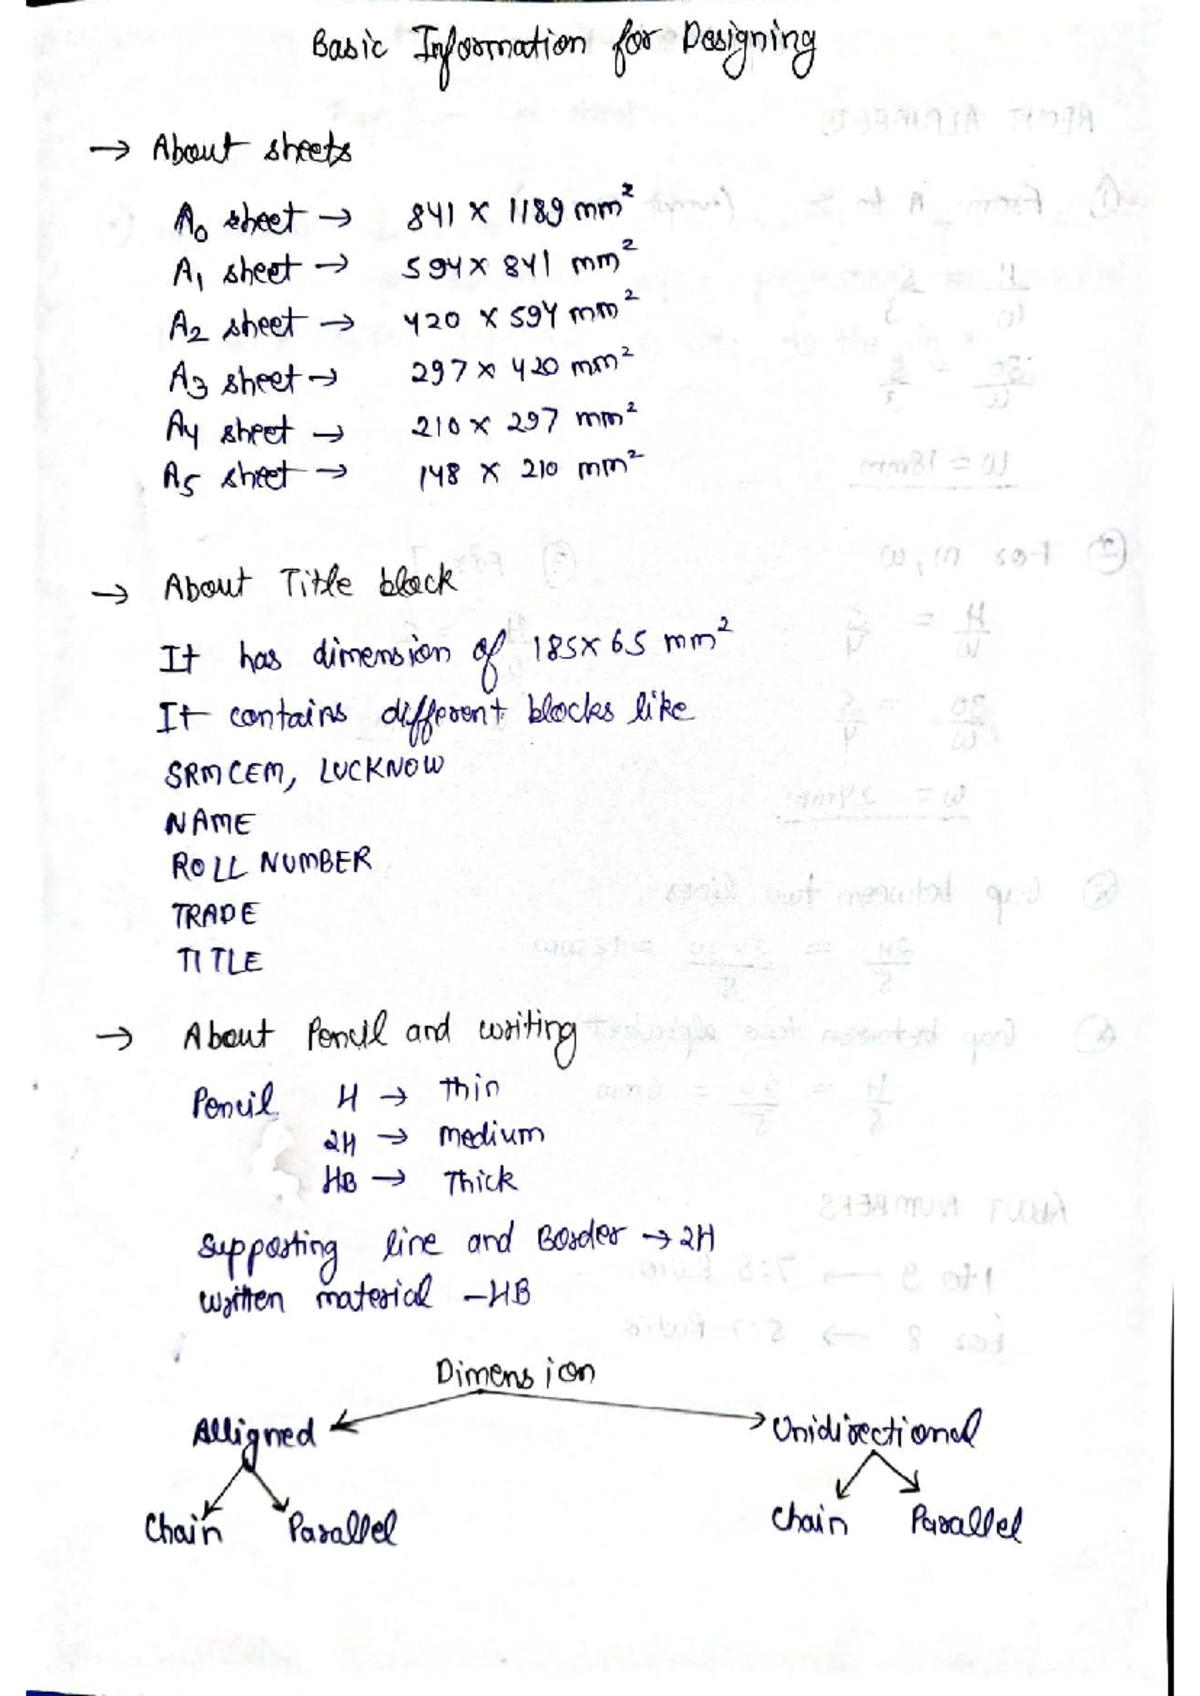 Basic Information for Designing
→ About sheets
A0 sheet → 841 x 1189 mm²
A1 sheet → 594 x 841 mm²
A2 sheet → 420 x 594 mm²
A3 sheet → 297 x 420 mm²
A4 sheet → 210 x 297 mm²
A5 sheet → 148 x 210 mm²
→ About Title block
It has dimension of 185x65 mm²
It contains different blocks like
SRMCEM, LUCKNOW
NAME
ROLL NUMBER
TRADE
TITLE
→ About Pencil and writing
Pencil H → thin
2H → medium
HB → Thick
Supporting line and Border → 2H
written material - HB
Dimension
Alligned Unidirectional
Chain Parallel Chain Parallel